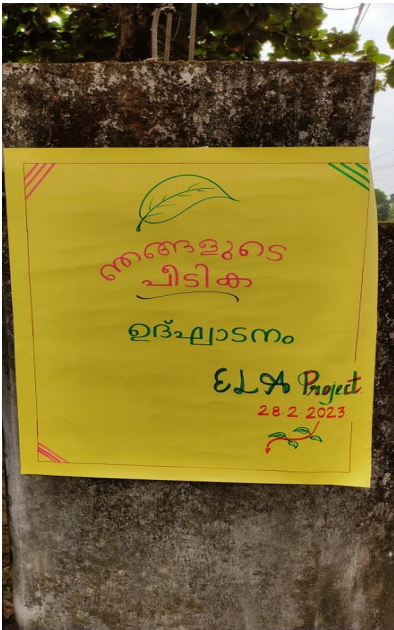 ഞങ്ങളുടെ
പീടിക
ഉദ്ഘാടനം
ELA Project
28.2.2023